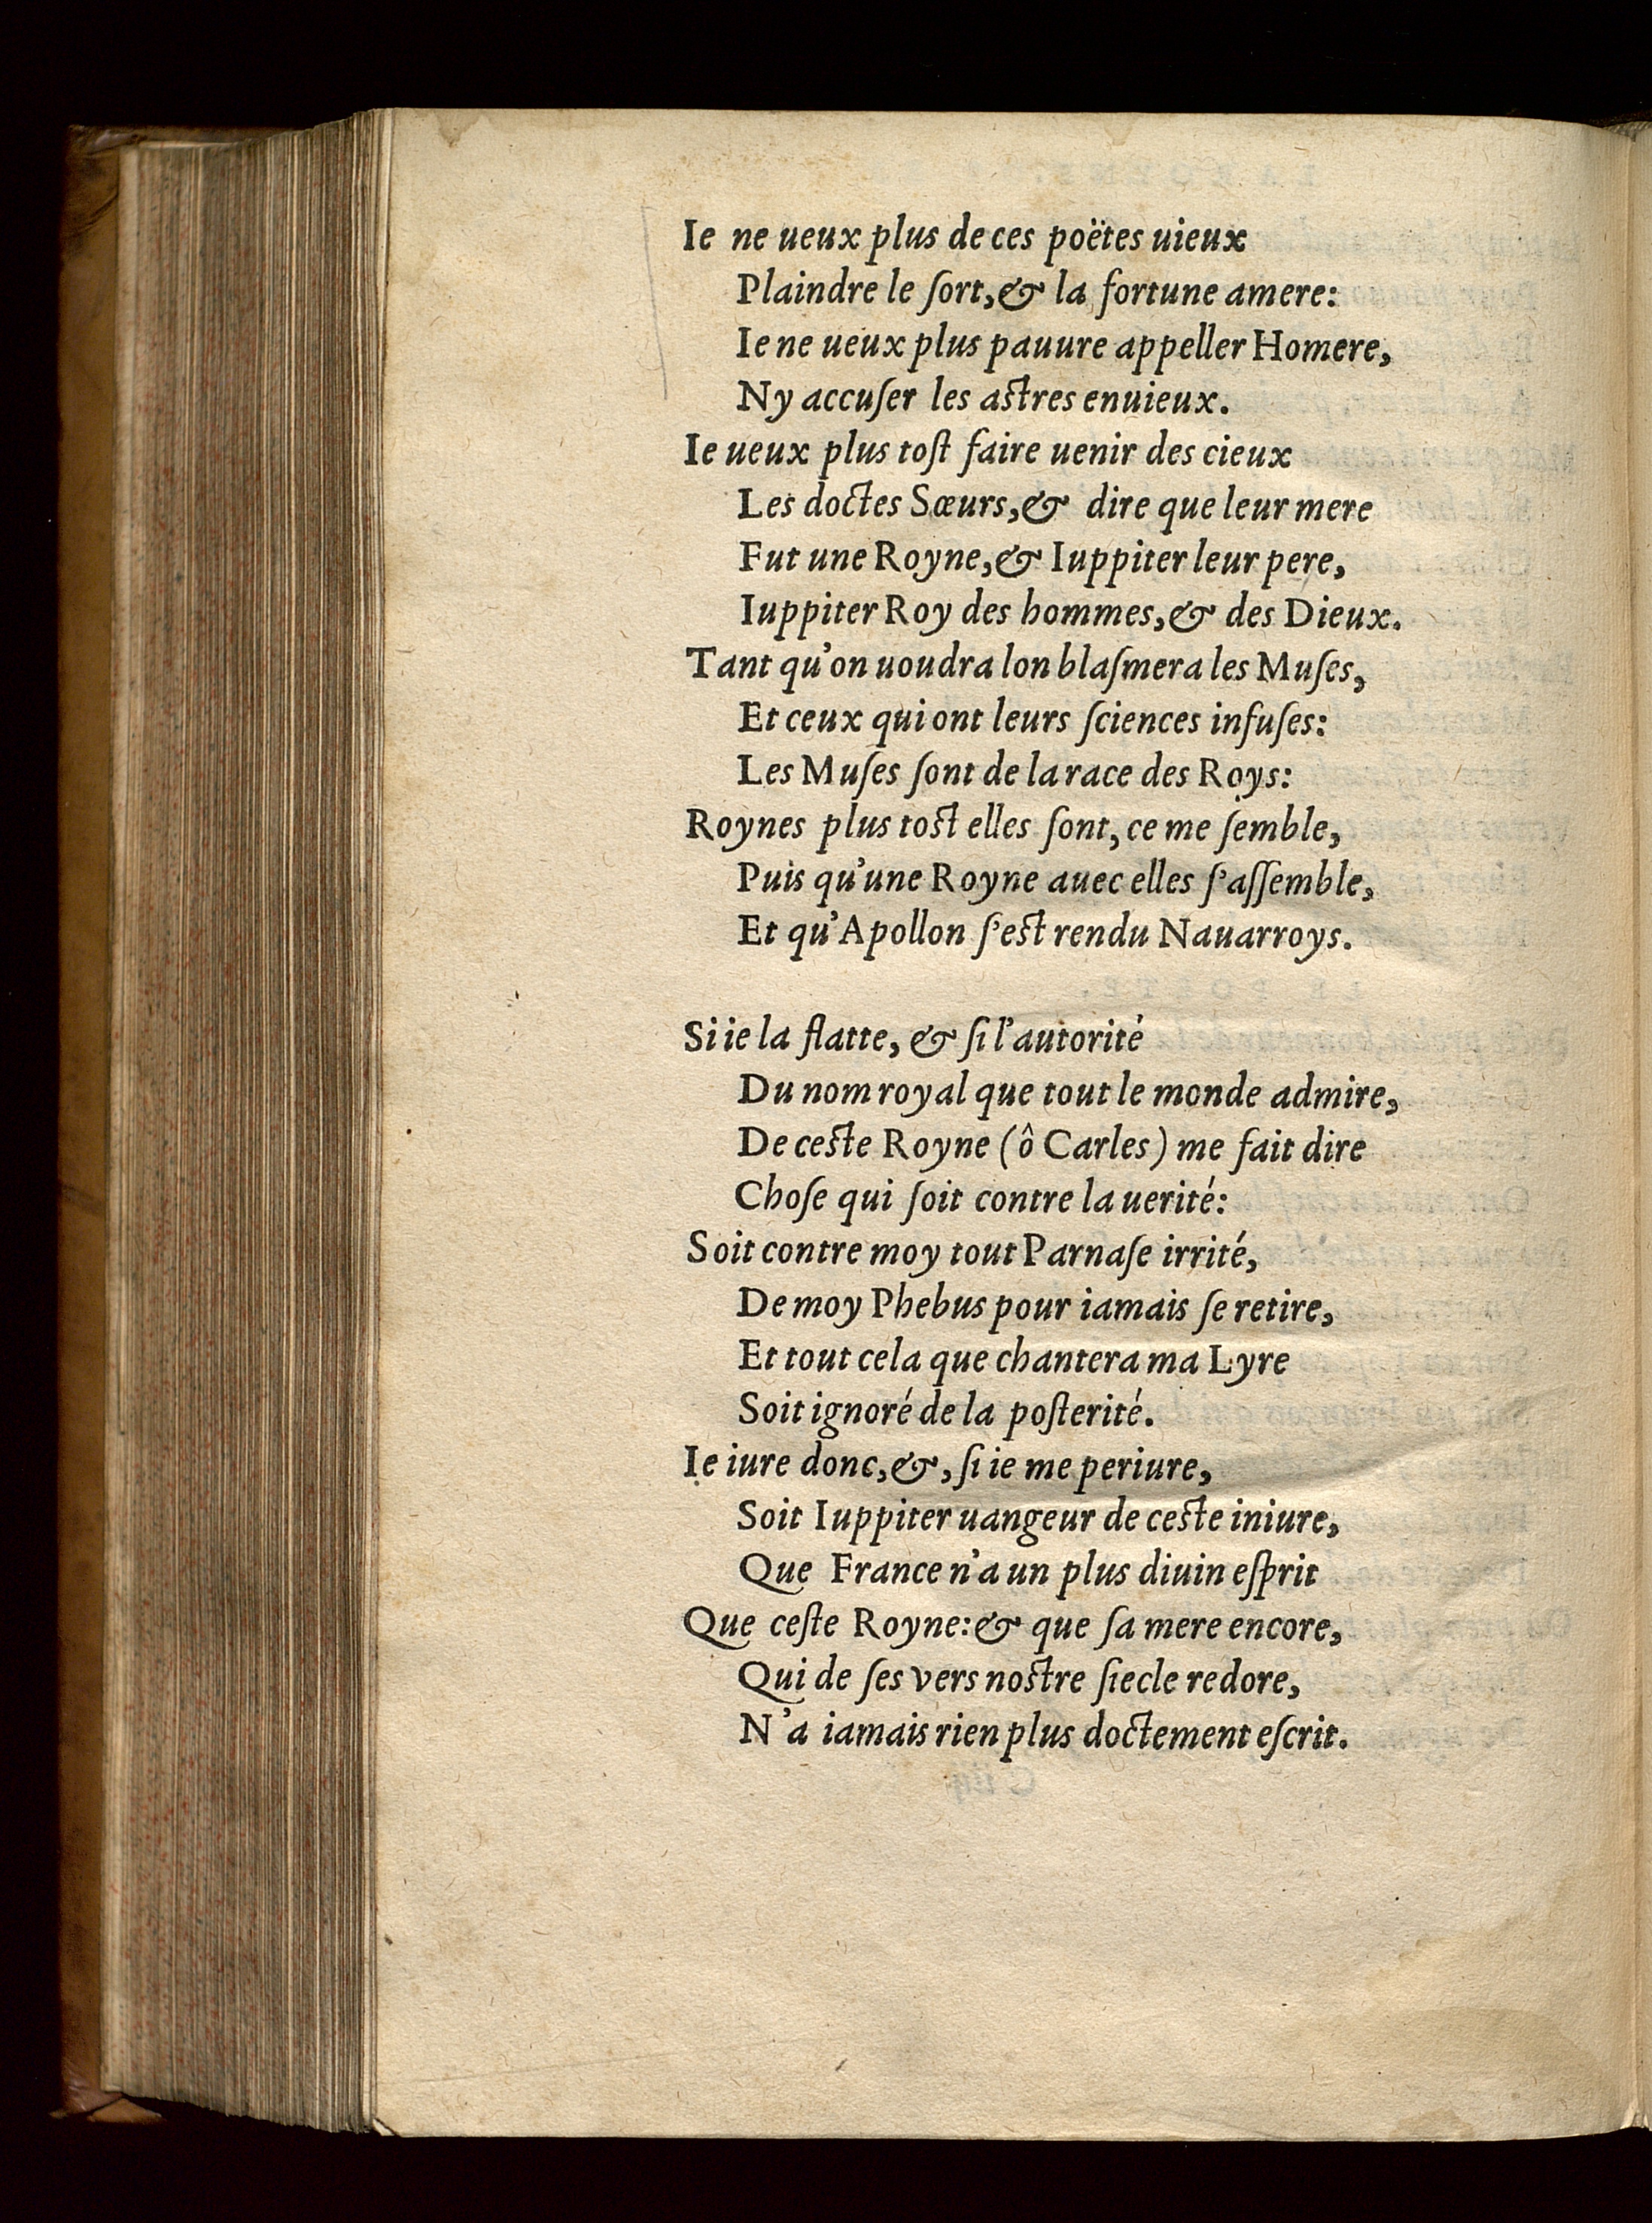 Ie ne ueux plus de ces poëtes uieux
Plaindre le ſort, & la fortune amere:
Ie ne ueux plus pauure appeller Homere,
Ny accuſer les aſtres enuieux.
Ie ueux plus toſt faire uenir des cieux
Les doctes Sœurs, & dire que leur mere
Fut une Royne, & Iuppiter leur pere,
Iuppiter Roy des hommes, & des Dieux.
Tant qu'on uoudra lon blaſmera les Muſes,
Et ceux qui ont leurs ſciences infuſes:
Les Muſes ſont de la race des Roys:
Roynes plus toſt elles ſont, ce me ſemble,
Puis qu'une Royne auec elles ſ'aſſemble,
Et qu'Apollon ſ'eſt rendu Nauarroys.
Si ie la flatte, & ſi l'autorité
Du nom royal que tout le monde admire,
De ceſte Royne (ô Carles) me fait dire
Choſe qui ſoit contre la uerité:
Soit contre moy tout Parnaſe irrité,
De moy Phebus pour iamais ſe retire,
Et tout cela que chantera ma Lyre
Soit ignoré de la poſterité.
Ie iure donc, &, ſi ie me periure,
Soit Iuppiter uangeur de ceſte iniure,
Que France n'a un plus diuin eſprit
Que ceſte Royne: & que ſa mere encore,
Qui de ſes vers noſtre ſiecle redore,
N'a iamais rien plus doctement eſcrit.